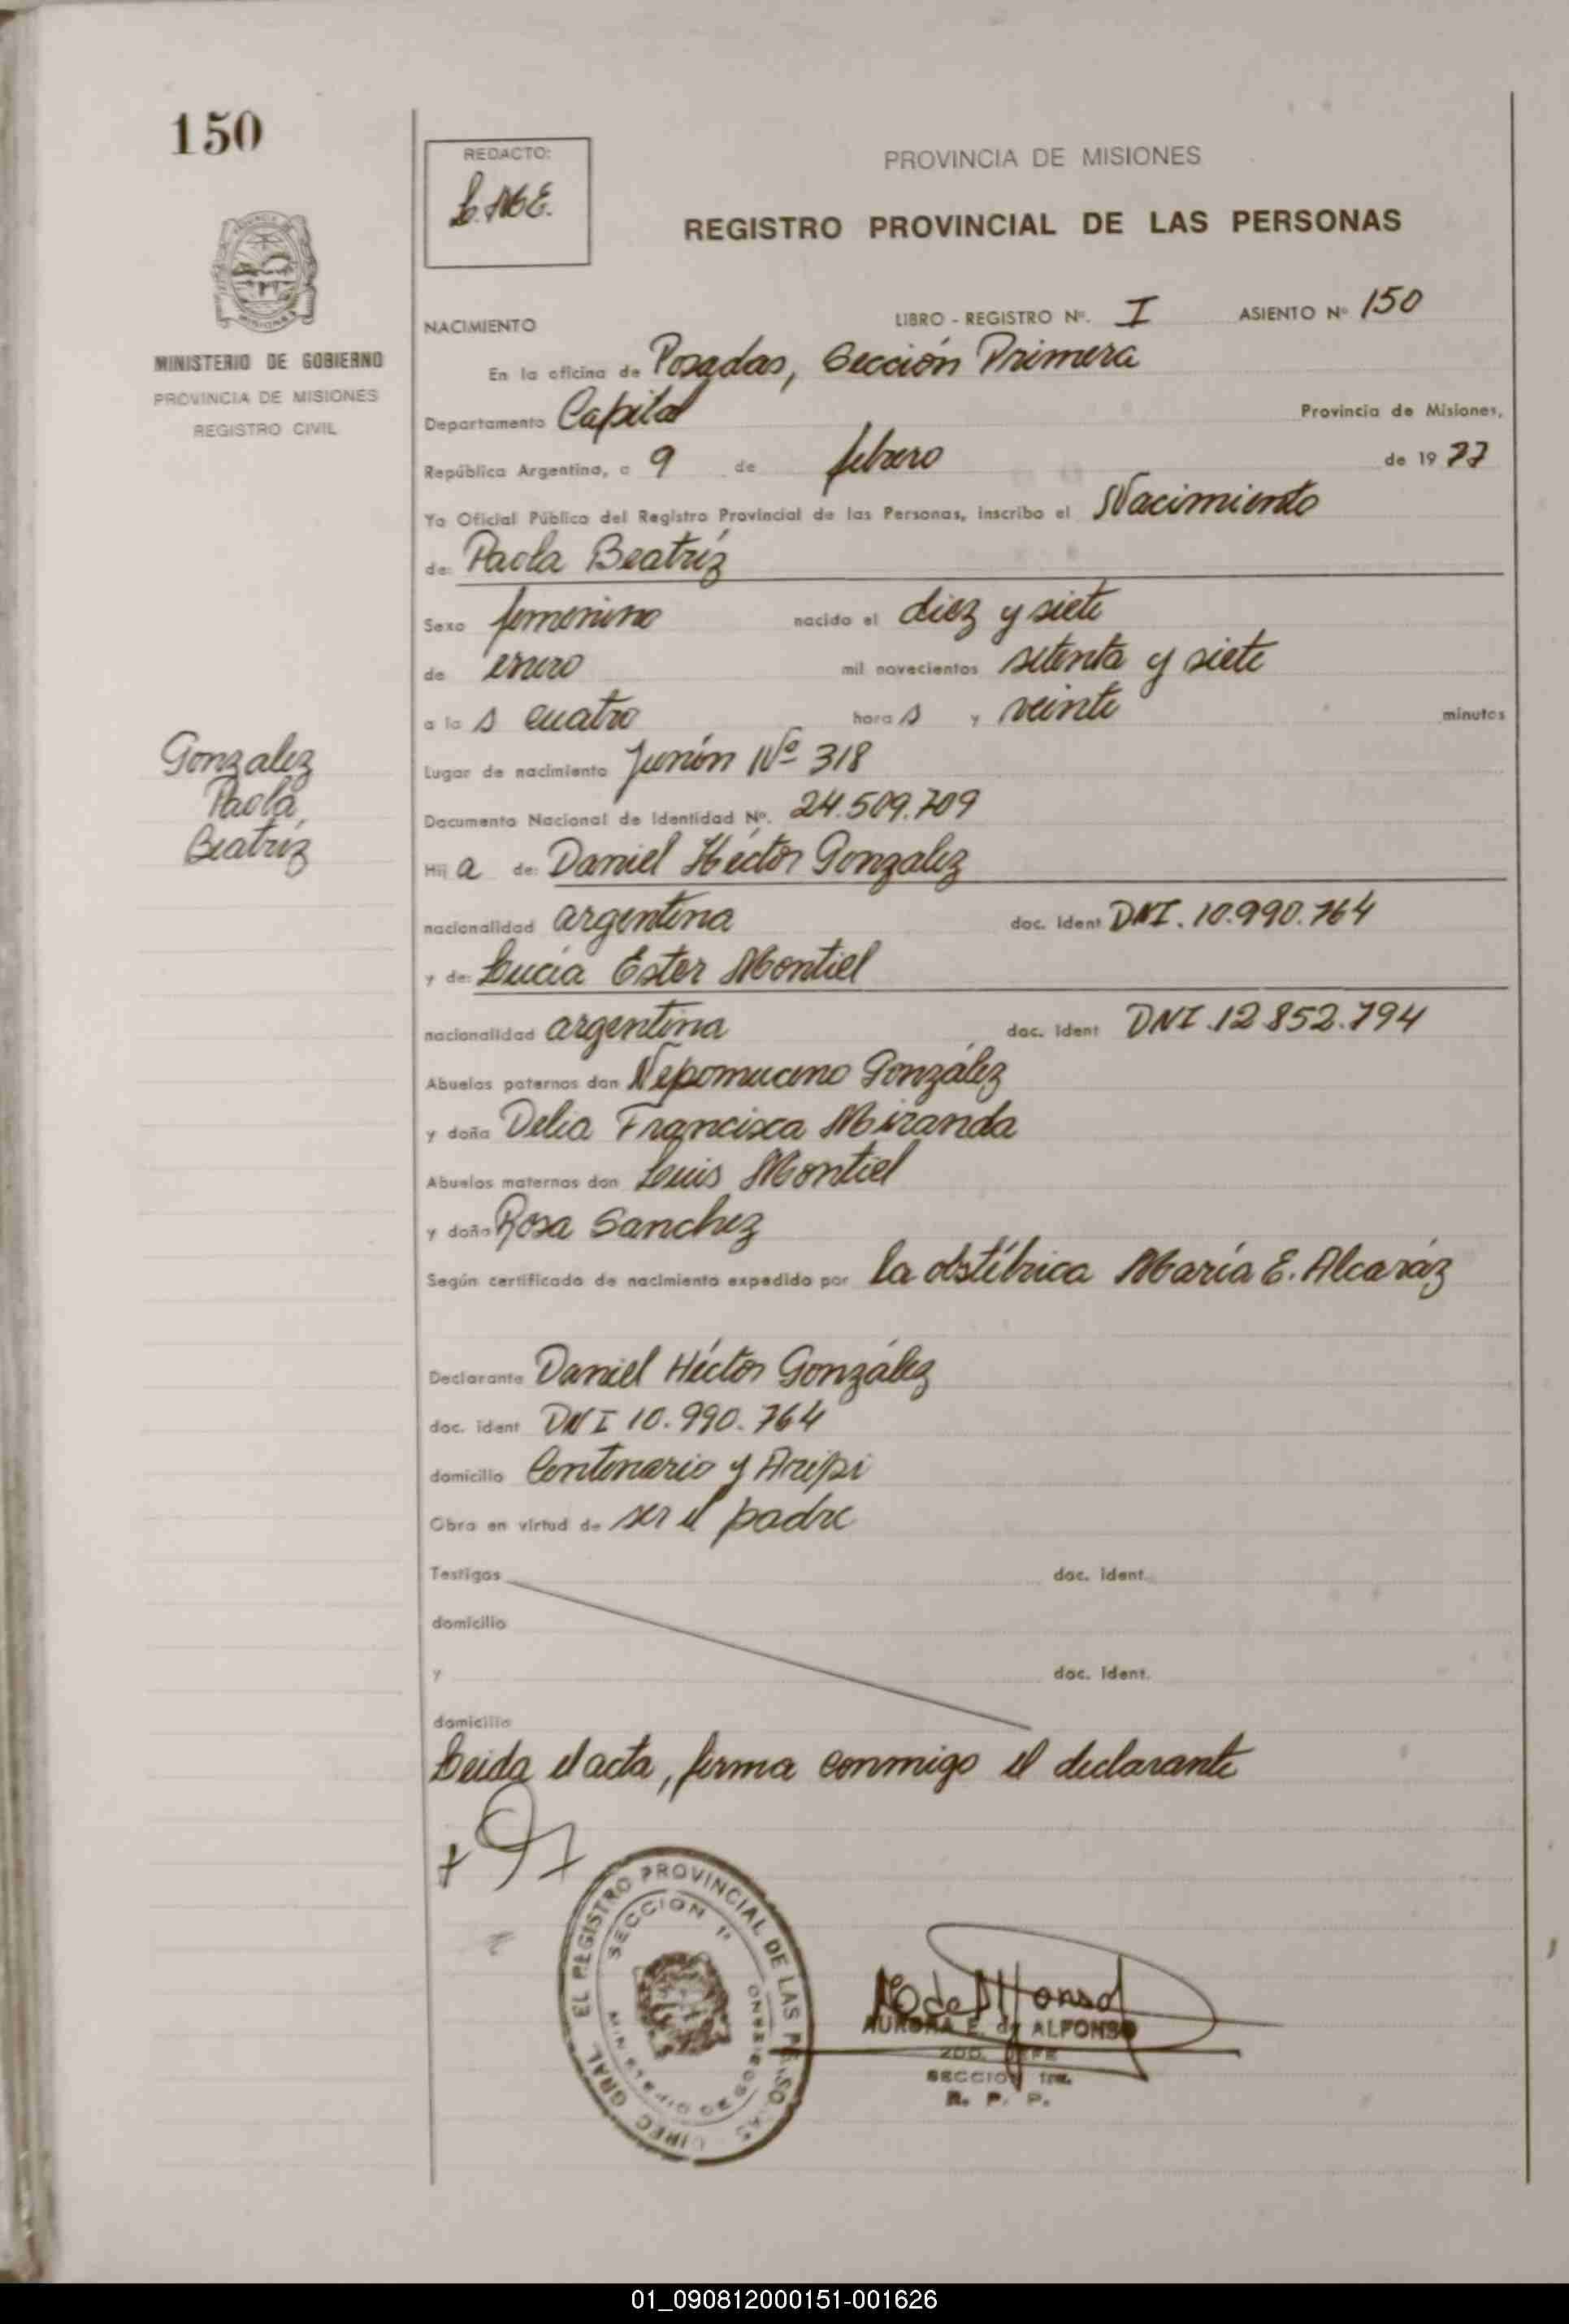 150
REDACTO:
L. M. E.
PROVINCIA DE MISIONES
REGISTRO PROVINCIAL DE LAS PERSONAS
MINISTERIO DE GOBIERNO
PROVINCIA DE MISIONES
REGISTRO CIVIL
NACIMIENTO LIBRO - REGISTRO Nº. I ASIENTO Nº 150
En la oficina de Posadas, Sección Primera
Departamento Capital Provincia de Misiones,
República Argentina, a 9 de febrero de 1977
Yo Oficial Público del Registro Provincial de las Personas, inscribo el Nacimiento
de: Paola Beatríz
Sexo femenino nacido el diez y siete
de enero mil novecientos setenta y siete
a la s cuatro hora s y veinte minutos
Gonzalez
Paola
Beatríz
Lugar de nacimiento Junín Nº 318
Documento Nacional de Identidad Nº. 24.509.709
Hij a de: Daniel Héctor Gonzalez
nacionalidad argentina doc. ident DNI. 10.990.764
y de: Lucía Ester Montiel
nacionalidad argentina doc. ident DNI. 12.852.794
Abuelos paternos don Nepomuceno González
y doña Delia Francisca Miranda
Abuelos maternos don Luis Montiel
y doña Rosa Sanchez
Según certificado de nacimiento expedido por la obstétrica María E. Alcaráz
Declarante Daniel Héctor González
doc. ident DNI 10.990.764
domicilio Centenario y Aripi
Obra en virtud de ser el padre
Testigos doc. ident.
domicilio
y doc. ident.
domicilio
Leida el acta, firma conmigo el declarante
DIREC. GRAL. EL REGISTRO PROVINCIAL DE LAS PERSONAS
SECCION 1ª
MINISTERIO DE GOBIERNO
AURORA E. de ALFONSO
2DO. JEFE
SECCION 1ra.
R. P. P.
01_090812000151-001626